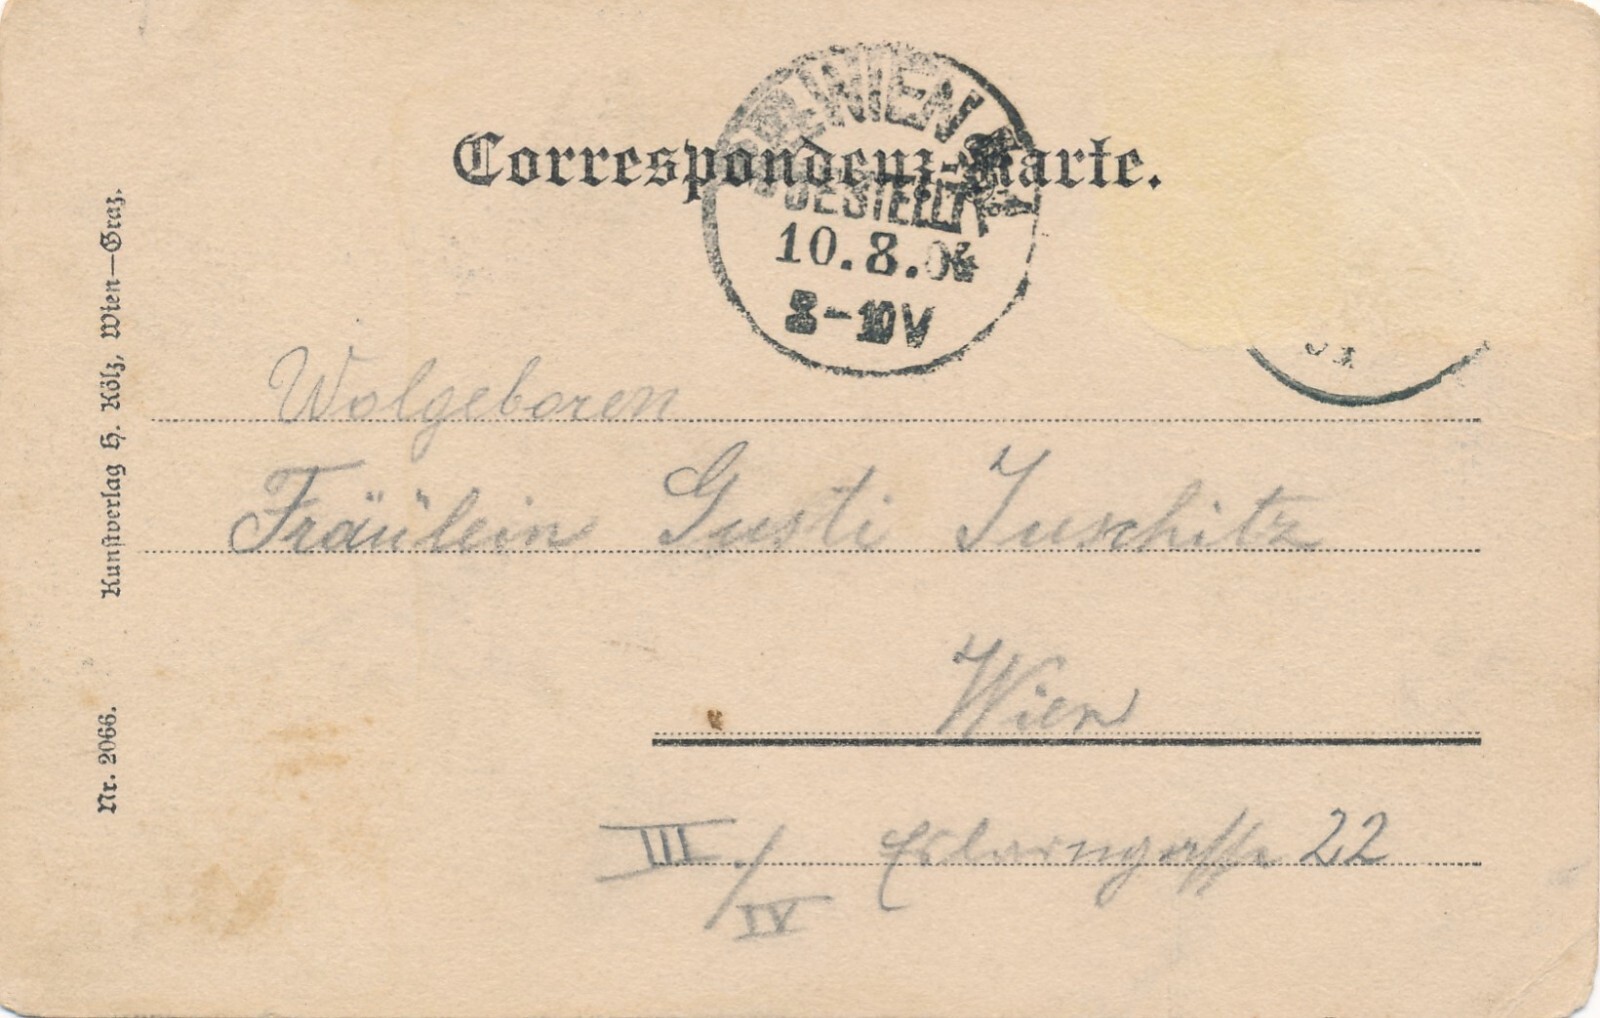 Correspondenz-Karte.
WIEN
BESTELLT
10.8.04
8-10V
Wolgeboren
Fräulein Gusti Juschitz
Wien
III/IV Eslarngasse 22
Kunstverlag H. Kölz, Wien—Graz.
Nr. 2066.